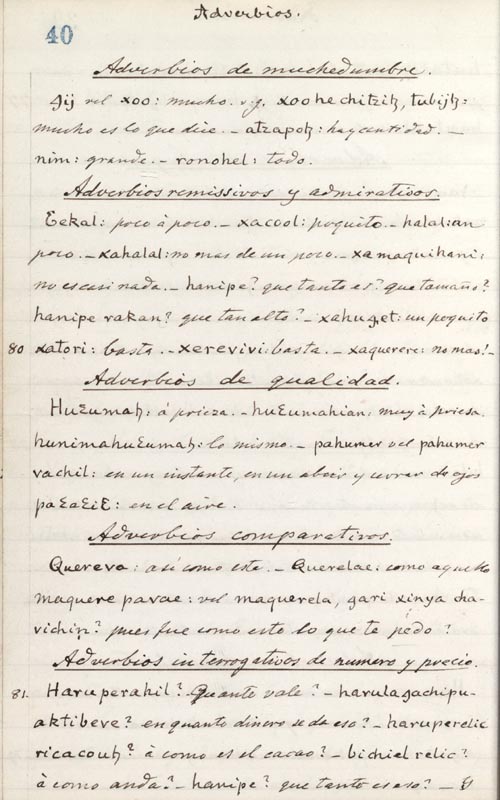 Adverbios.
40
Adverbios de muchedumbre.
Qij vel xoo: mucho. v.g. xoo he chitziꜩ, tubijꜩ:
mucho es lo que dice. – atzapoꜩ: hay cantidad. –
nim: grande. – ronohel: todo.
Adverbios remissivos y admirativos.
Ɛekal: poco à poco. – xacool: poquito. – halal: an
poco. – xahalal: no mas de un poco. – xamaquihani:
no es casi nada. – hanipe? que tanto es? que tamaño?
hanipe rakan? que tan alto? – xahuꜭet: un poquito
80 xatori: basta. – xerevivi: basta. – xaquerere: no mas! –
Adverbios de qualidad.
HuƐumaꜩ: á prieza. – huƐumahian: muy à priesa.
hunimahuƐumaꜩ: lo mismo. – pahumer vel pahumer
vachil: en un instante, en un abrir y cerrar de ojos
paƐaƐiƐ: en el aire.
Adverbios comparativos.
Quereva: así como este. – Querelae: como aquello
maquere pavae: vel maquerela, ꜭari xinya cha-
vichiꜩ? pues fue como esto lo que te pedo?
Adverbios interrogativos de numero y precio.
81. Haruperahil? Quanto vale? – harulaꜭachipu-
aktibeve? en quanto dinero se da eso? – haruperelic
ricacouꜩ? à como es el cacao? – bichiel relic?
à como anda? – hanipe? que tanto es eso? –